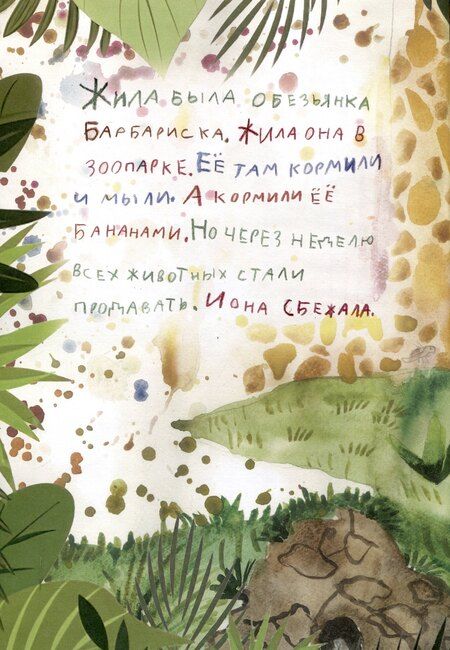 Жила была обезьянка
Барбариска. Жила она в
зоопарке. Её там кормили
и мыли. А кормили её
бананами. Но через неделю
всех животных стали
продавать. И она сбежала.